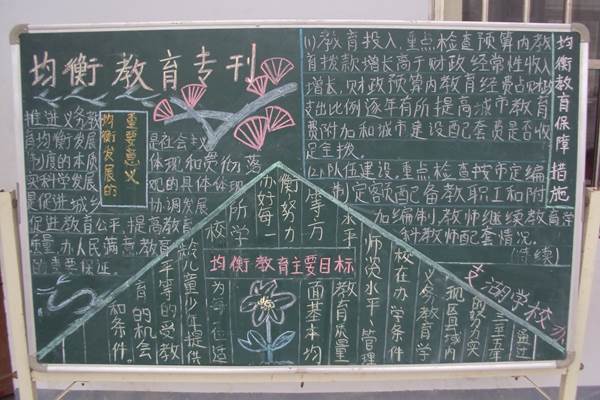 均衡教育专刊
推进义务教
育均衡发展是社会主义
制度的本质体现和贯彻落
实科学发展观的具体体现
是促进城乡协调发展
促进教育公平,提高教育
质量,办人民满意教育
的重要保证
重要意义
均衡发展的
(1)教育投入,重点检查预算内教
育拨款增长高于财政经常性收入
增长,财政预算内教育经费占财政
支出比例逐年有所提高城市教育
费附加和城市建设配套费是否收
足全拨。
(2)队伍建设,重点检查按市定编
制定额配备教职工和附
加编制,教师继续教育,学
科教师配套情况。
(待续)
均衡教育保障措施
均衡教育主要目标
通过
三至五年
的努力实
现区域内
义务教育学
校在办学条件
师资水平、管理
水平教育质量
等方面基本均
衡努力
办好每一
所学
校为每一位适
龄儿童少年提供
平等的受教
育的机会
和条件。
支湖学校办